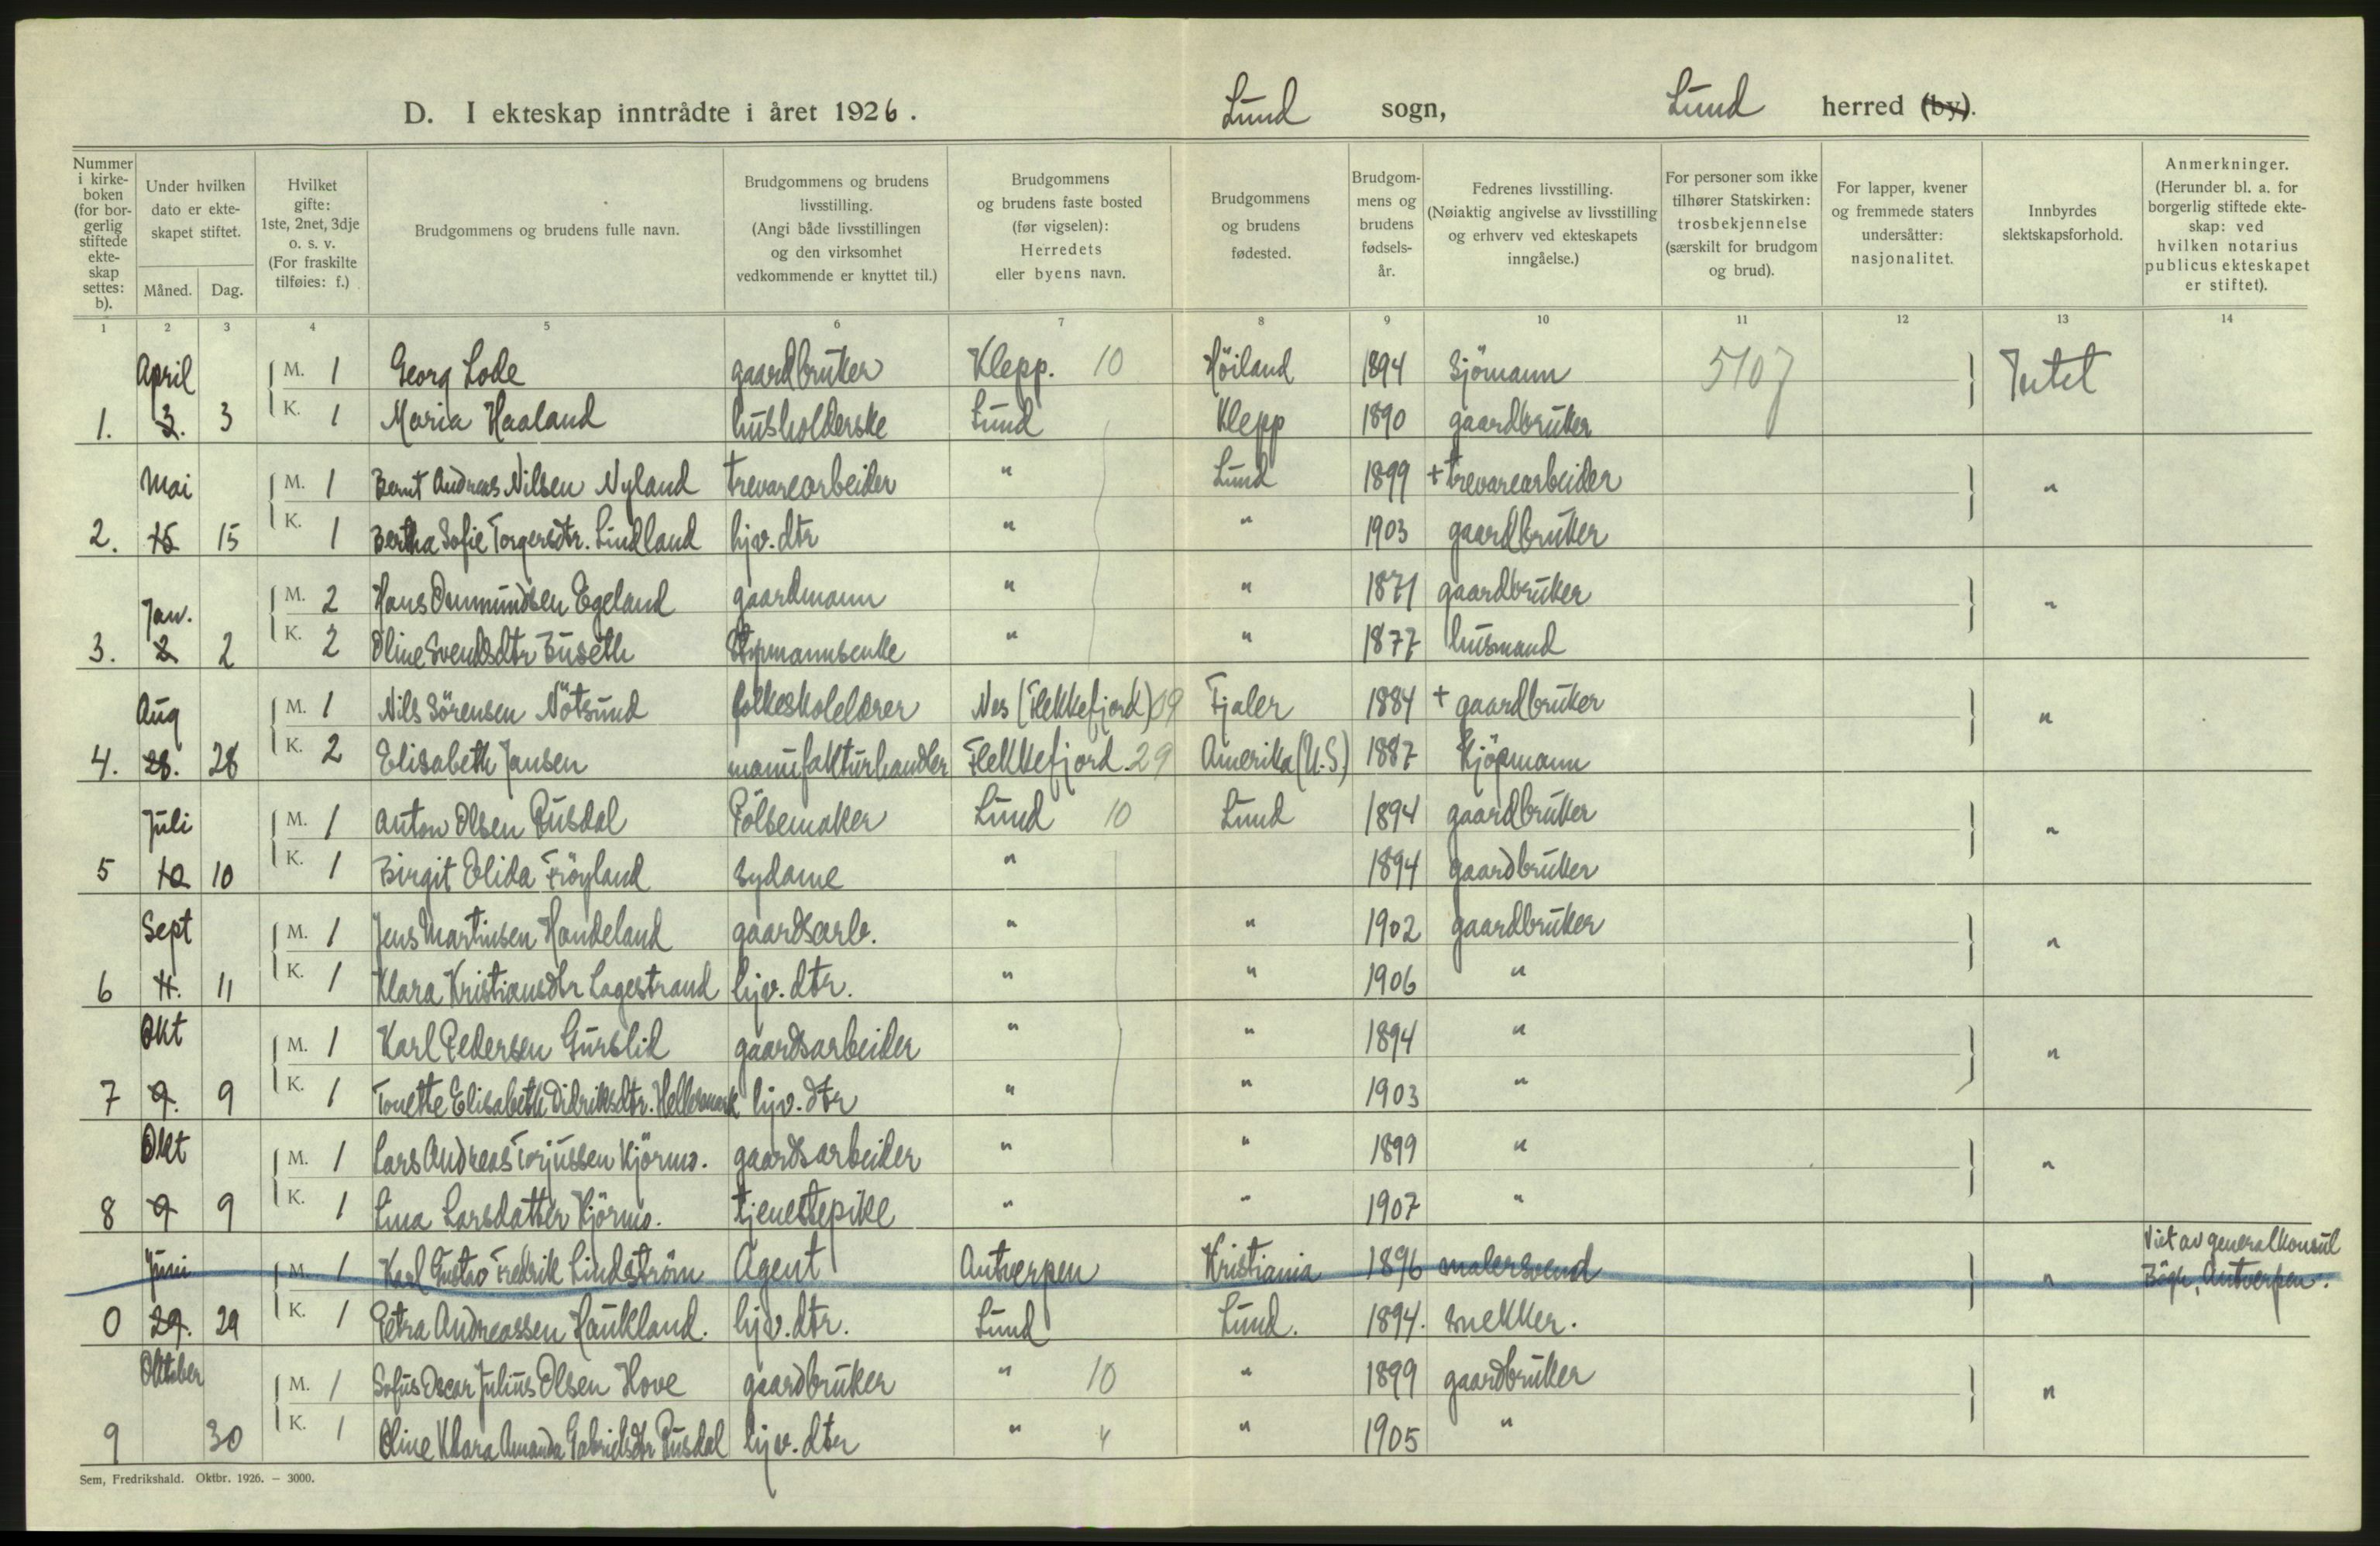 D. I ekteskap inntrådte i året 1926. Lund sogn, Lund herred (by).
Nummer i kirke-boken (for bor-gerlig stiftede ekte-skap settes: b). Under hvilken dato er ekte-skapet stiftet. Måned. Dag. Hvilket gifte: 1ste, 2net, 3dje o. s. v. (For fraskilte tilføies: f.) Brudgommens og brudens fulle navn. Brudgommens og brudens livsstilling. (Angi både livsstillingen og den virksomhet vedkommende er knyttet til.) Brudgommens og brudens faste bosted (før vigselen): Herredets eller byens navn. Brudgommens og brudens fødested. Brudgom-mens og brudens fødsels-år. Fedrenes livsstilling. (Nøiaktig angivelse av livsstilling og erhverv ved ekteskapets inngåelse.) For personer som ikke tilhører Statskirken: trosbekjennelse (særskilt for brudgom og brud). For lapper, kvener og fremmede staters undersåtter: nasjonalitet. Innbyrdes slektskapsforhold. Anmerkninger. (Herunder bl. a. for borgerlig stiftede ekte-skap: ved hvilken notarius publicus ekteskapet er stiftet).
1 2 3 4 5 6 7 8 9 10 11 12 13 14
April M. 1 Georg Lode gaardbruker Klepp. 10 Höiland 1894 Sjömann 5107 Intet
1. 3. 3 K. 1 Maria Haaland husholderske Lund Klepp 1890 gaardbruker
Mai M. 1 Bernt Andreas Nilsen Nyland trevarearbeider " Lund 1899 + trevarearbeider "
2. 15 15 K. 1 Bertha Sofie Torgersdtr. Lindland hjv. dtr " " 1903 gaardbruker
Jan. M. 2 Hans Ommundsen Egeland gaardmann " " 1871 gaardbruker "
3. 2 2 K. 2 Oline Svendsdtr Buseth " " 1877 husmand
Aug M. 1 Nils Sörensen Nötsund folkeskolelærer Nes (Flekkefjord) 09 Fjaler 1884 + gaardbruker "
4. 28. 28 K. 2 Elisabeth Jansen manufakturhandler Flekkefjord. 29 Amerika (U.S.) 1887 Kjöpmann
Juli M. 1 Anton Olsen Rusdal Pölsemaker Lund 10 Lund 1894 gaardbruker "
5 10 10 K. 1 Birgit Elida Fröyland sydame " 1894 gaardbruker
Sept M. 1 Jens Martinsen Handeland gaardsarb. " " 1902 gaardbruker "
6 11. 11 K. 1 Klara Kristiansdtr Lagestrand hjv. dtr. " " 1906 "
Okt M. 1 Karl Pedersen Gurslid gaardsarbeider " " 1894 " "
7 9. 9 K. 1 Tonette Elisabeth Didriksdtr. Hellesmark hjv. dtr " " 1903 "
Okt M. 1 Lars Andreas Torjussen Kjörmo. gaardsarbeider " " 1899 " "
8 9 9 K. 1 Lina Larsdatter Kjörmo. tjenestepike " " 1907 "
Juni M. 1 Karl Gustav Fredrik Lindström Agent Antverpen Kristiania 1896 malersvend " Viet av generalkonsul Bögh, Antverpen.
0 29. 29 K. 1 Petra Andreassen Haukland. hjv. dtr. Lund Lund. 1894. snekker.
Oktober M. 1 Sofus Oscar Julius Olsen Hove gaardbruker " 10 " 1899 gaardbruker "
9 30 K. 1 Oline Klara Amanda Gabrielsdtr Rusdal hjv. dtr " 4 " 1905 "
Sem, Fredrikshald. Oktbr. 1926. – 3000.